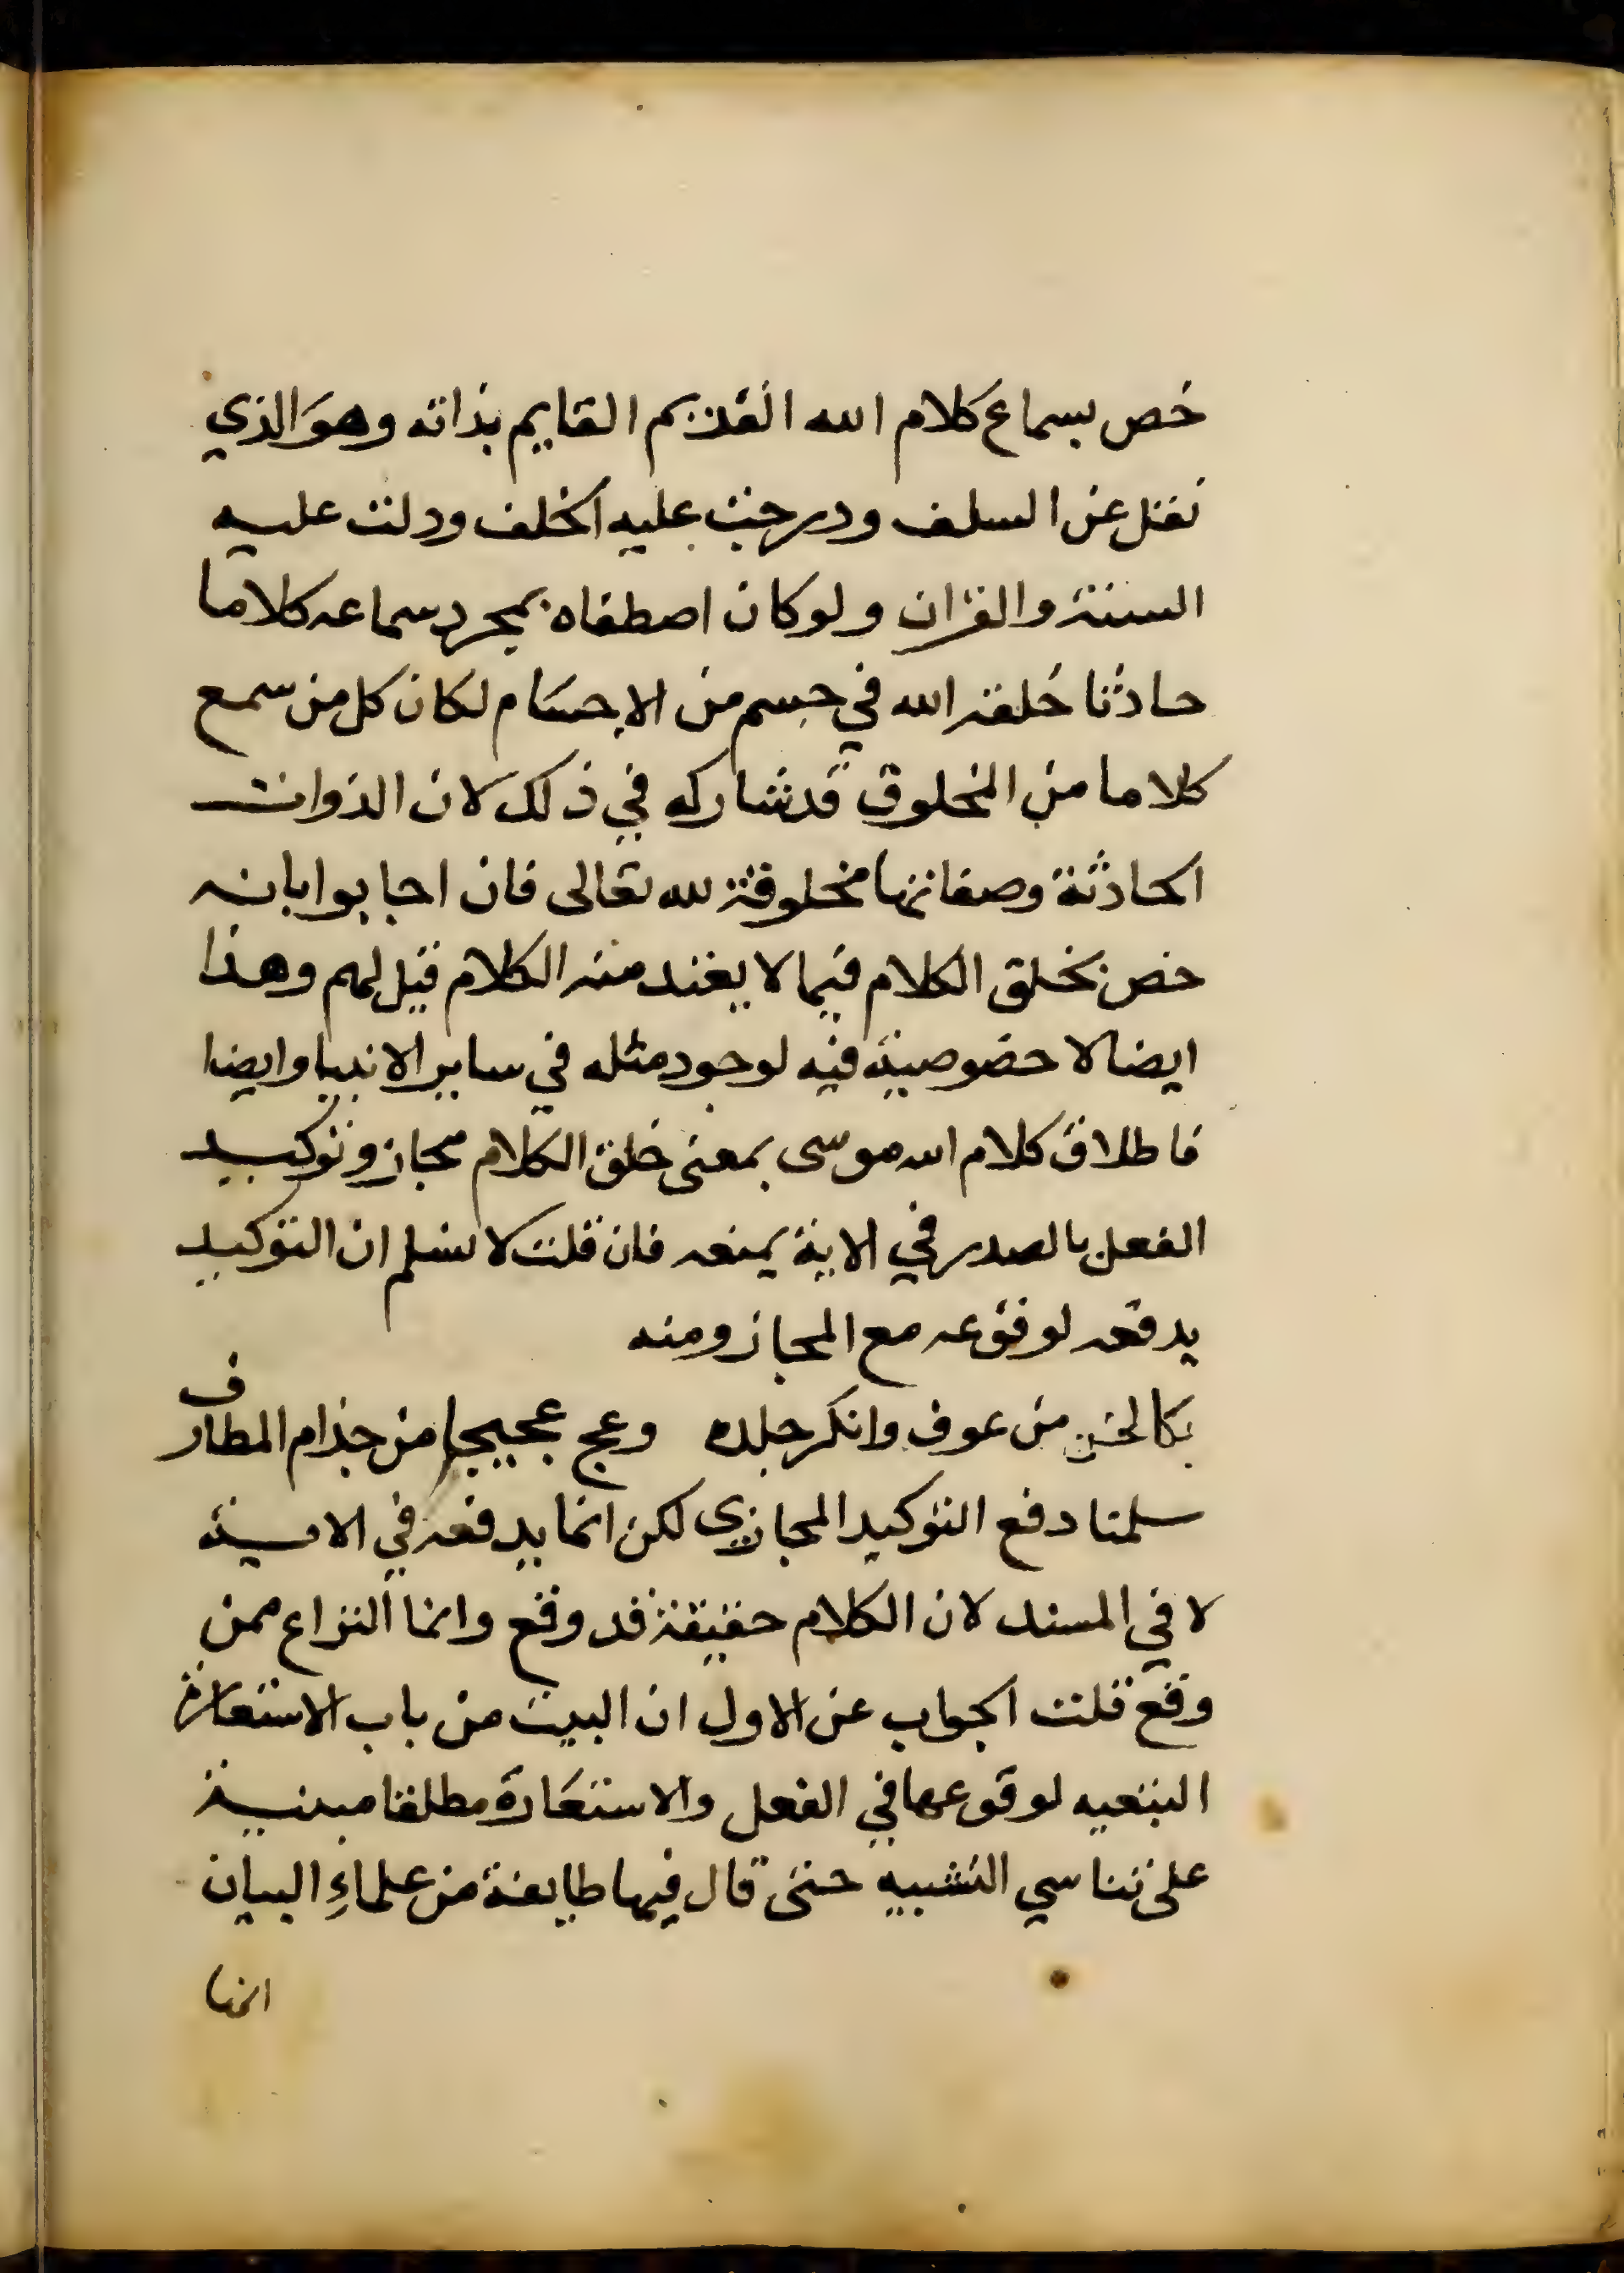 خص بسماع كلام الله القديم القايم بذاته وهو الذي
نقل عن السلف ودرجت عليه الخلف ودلت عليه
السنة والقران ولو كان اصطفاه بمجرد سماعه كلاما
حادثا خلقه الله في جسم من الاجسام لكان كل من سمع
كلاما من المخلوق قد شاركه في ذلك لان الذوات
الحادثة وصفاتها مخلوقة لله تعالى فان اجابوا بانه
خص بخلق الكلام فيما لا يعهد منه الكلام قيل لهم وهذا
ايضا لا خصوصية فيه لوجود مثله في ساير الانبيا وايضا
فاطلاق كلام الله موسى بمعنى خلق الكلام مجاز وتوكيد
الفعل بالصدر في الاية يمنعه فان قلت لا نسلم ان التوكيد
يدفعه لوقوعه مع المجاز ومنه
من عوف وانكر جلده وعج عجيجا من جذام المطارف
سلمنا دفع التوكيد المجازي لكن انما يدفعه في
لا في المسند لان الكلام حقيقة قد وقع وانما النزاع ممن
وقع قلت الجواب عن الاول ان البيت من باب الاستعارة
التبعيه لوقوعها في الفعل والاستعارة مطلقا مبنية
على تناسي التشبيه حتى قال فيها طايفة من علماء البيان
انها